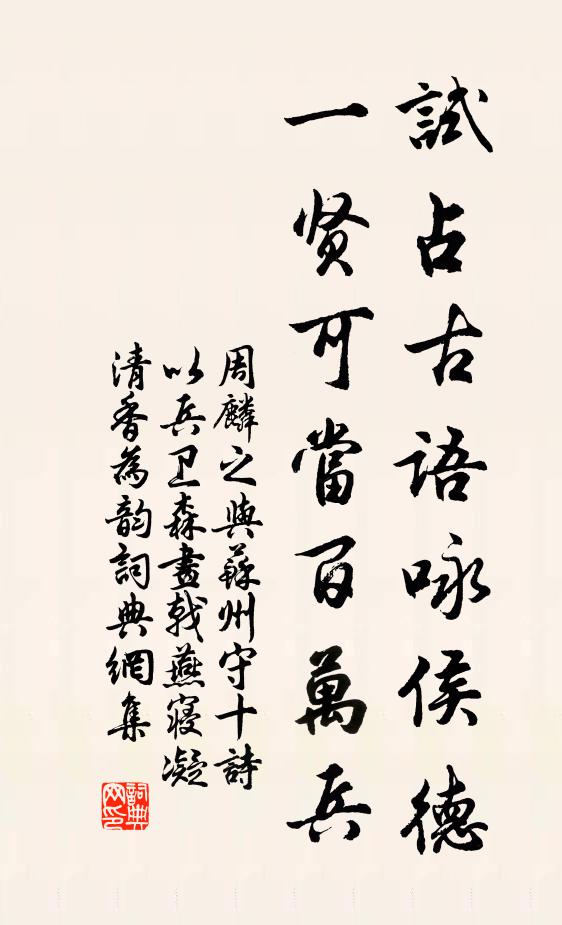 試占古语咏侯德
一贤可當百萬兵
周麟之與蘇州守十詩
以兵卫森畫戟燕寢凝
清香為韵詞典網集
詞典网印